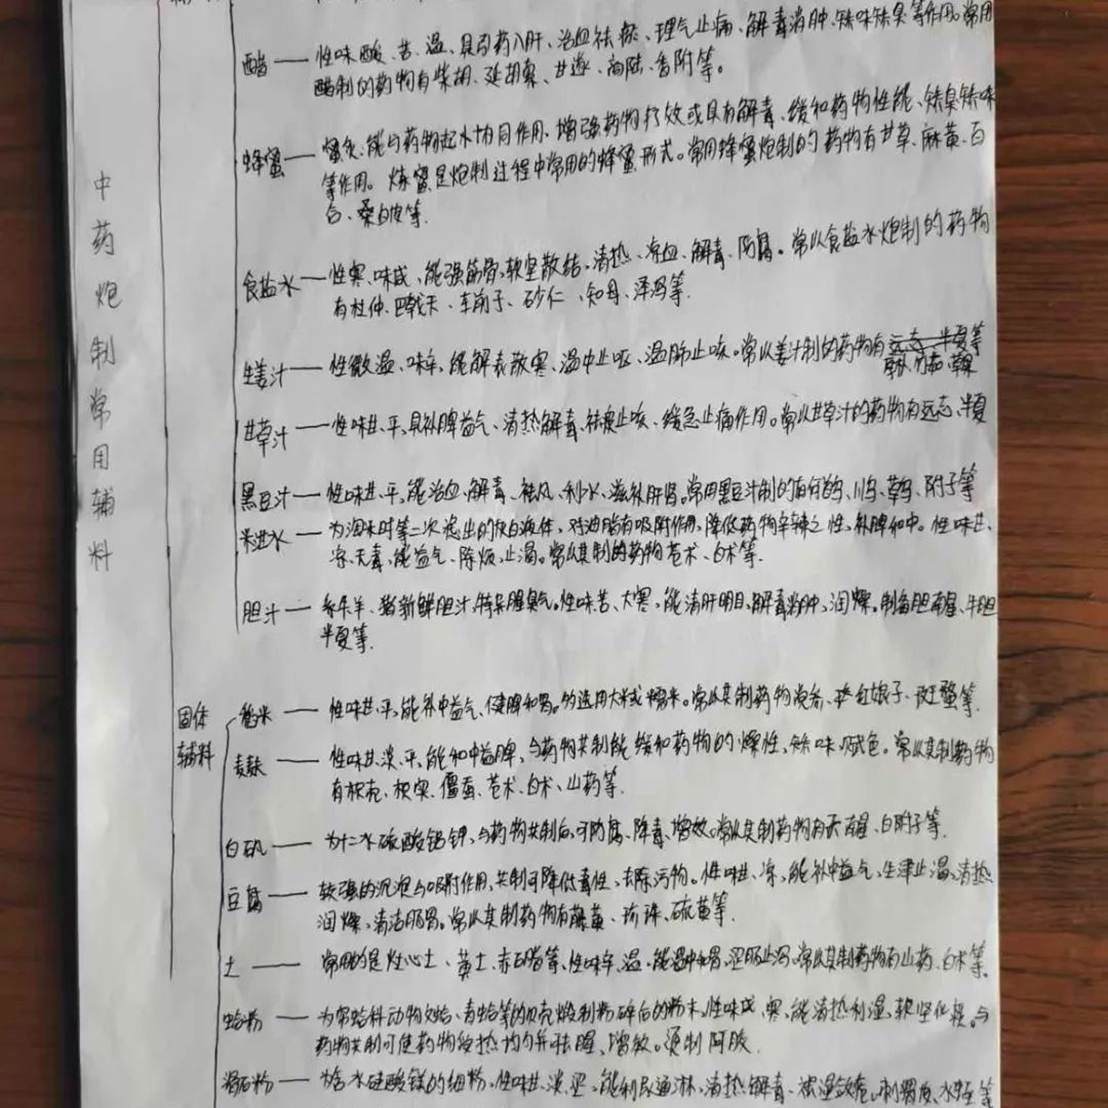 醋 —— 性味酸、苦、温、具引药入肝、活血祛瘀、理气止痛、解毒消肿、矫味矫臭等作用。常用
醋制的药物有柴胡、延胡索、甘遂、商陆、香附等。
蜂蜜 —— 蜜炙、能与药物起水协同作用、增强药物疗效或具有解毒、缓和药物性能、矫臭矫味
等作用。炼蜜是炮制过程中常用的蜂蜜形式。常用蜂蜜炮制的药物有甘草、麻黄、百
合、桑白皮等.
食盐水 —— 性寒、味咸、能强筋骨、软坚散结、清热、凉血、解毒、防腐。常以食盐水炮制的药物
有杜仲、巴戟天、车前子、砂仁、知母、泽泻等.
生姜汁 —— 性微温、味辛、能解表散寒、温中止呕、温肺止咳。常以姜汁制的药物有
竹茹、草果
甘草汁 —— 性味甘、平、具补脾益气、清热解毒、祛痰止咳、缓急止痛作用。常以甘草汁的药物有远志、半夏
黑豆汁 —— 性味甘、平、能活血、解毒、祛风、利水、滋补肝肾。常用黑豆汁制的有何首乌、川乌、草乌、附子等
米泔水 —— 为淘米时第二次滤出的灰白液体、对油脂有吸附作用、降低药物辛辣之性、补脾和中。性味甘、
凉、无毒、能益气、除烦、止渴。常以其制的药物苍术、白术等.
胆汁 —— 系牛羊、猪新鲜胆汁、特异腥臭气。性味苦、大寒、能清肝明目、解毒消肿、润燥。制备胆南星、牛胆
半夏等.
中药炮制常用辅料
固体
辅料
稻米 —— 性味甘、平、能补中益气、健脾和胃。多选用大米或糯米。常以其制药物党参、红娘子、斑蝥等.
麦麸 —— 性味甘、淡、平、能和中益脾、与药物共制能缓和药物的燥性、矫味、赋色。常以其制药物
有枳壳、枳实、僵蚕、苍术、白术、山药等.
白矾 —— 为十二水硫酸铝钾、与药物共制后、可防腐、降毒、增效。常以其制药物有天南星、白附子等.
豆腐 —— 较强的沉淀与吸附作用、共制可降低毒性、去除污物。性味甘、凉、能补中益气、生津止渴、清热
润燥、清洁肠胃。常以其制药物有藤黄、珍珠、硫黄等.
土 —— 常用的是灶心土、黄土、赤石脂等、性味辛、温、能温中和胃、涩肠止泻。常以其制药物有山药、白术等。
蛤粉 —— 为帘蛤科动物文蛤、青蛤等的贝壳煅制粉碎后的粉末、性味咸、寒、能清热利湿、软坚化痰。与
药物共制可使药物受热均匀并祛腥、增效。烫制阿胶.
滑石粉 —— 为含水硅酸镁的细粉、性味甘、淡、涩、能利尿通淋、清热解毒、祛湿敛疮。制刺猬皮、水蛭等